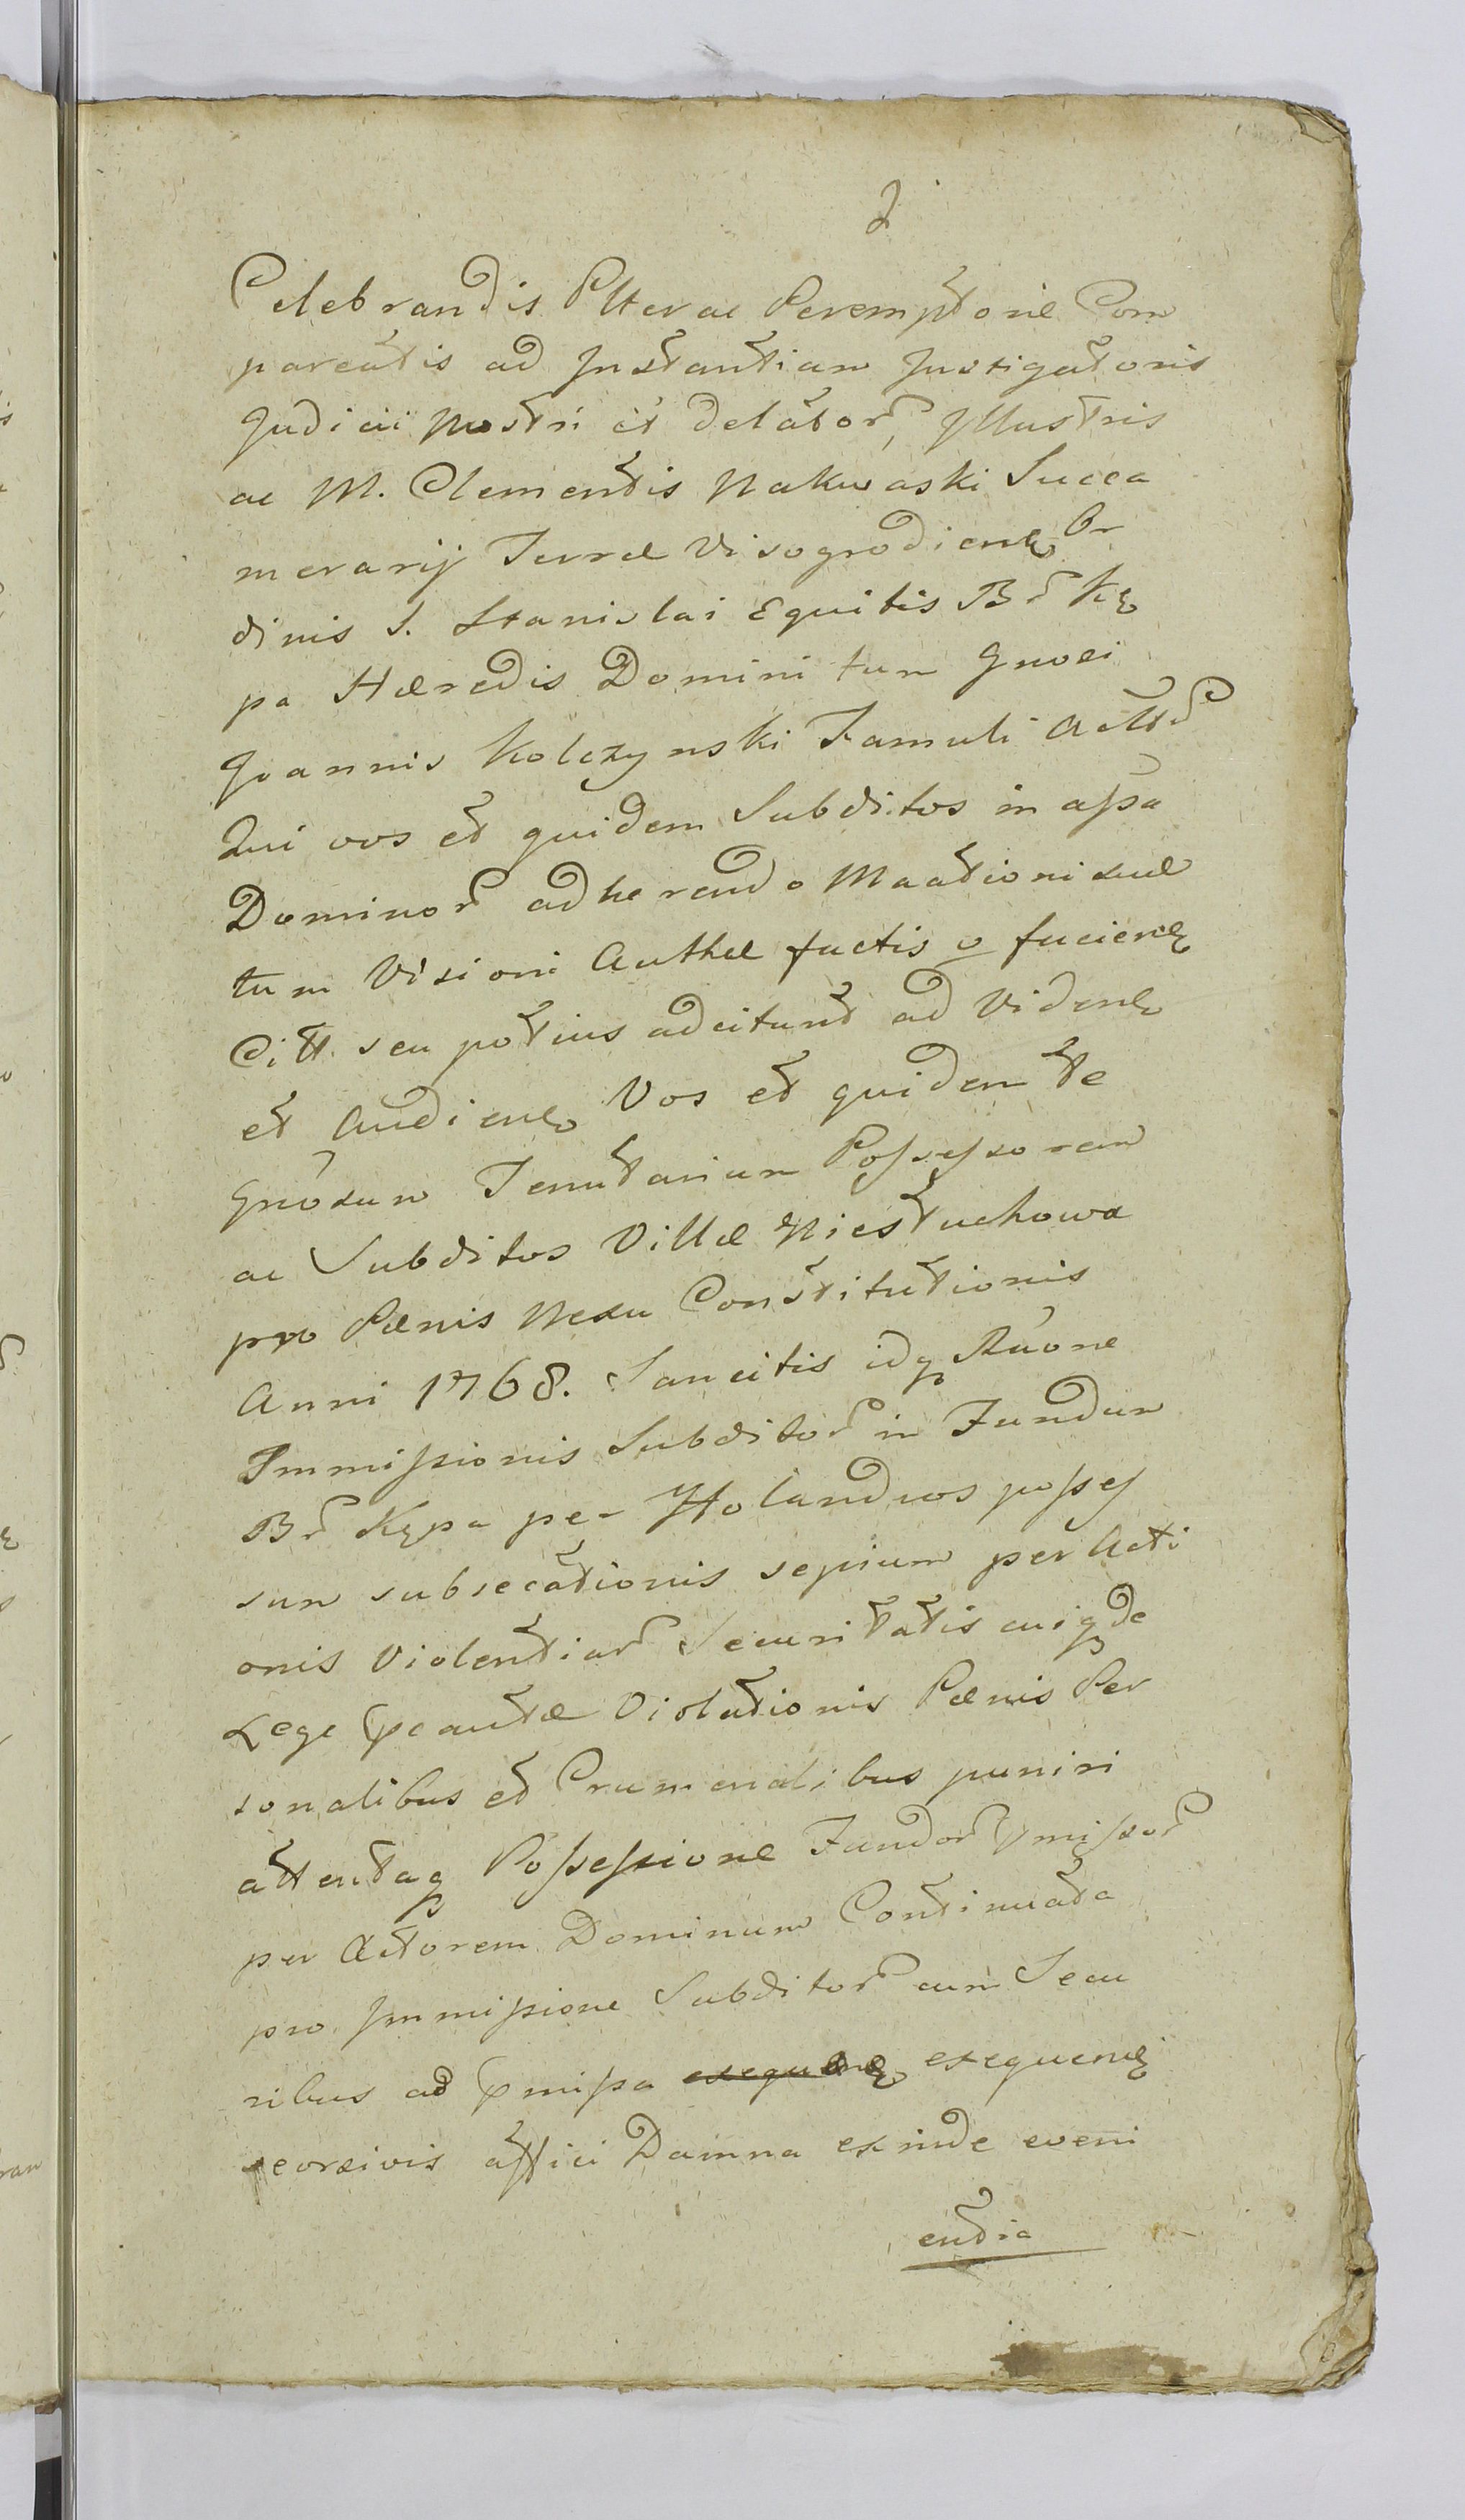 2
Celebrandis Ptter ac Peremptorie Com
pareatis ad Instantiam Instigatoris
Judicii Nostri et delator, Illustris
ac M. Clementis Nakwaski Succa
merarij Terræ Visogrodien Or
dinis S. Stanislai Equitis Br Kę
pa Hæredis Domini tum Gnosi
Joannis Kolczynski Famuli
Qui vos et quidem Subditos in assa
Dominor adherendo Maationi suæ
tum Visioni Authæ factis v facien
Citt. seu potius adcitant ad Viden
et Audien Vos et quidem te
Gnosum Tenutarium Possessorem
ac Subditos Villæ Niestuchowa
pro Pænis Nexu Constitutionis
Anni 1768. Sancitis idq Raone
Immissionis Subditor in Fundum
Br Kępa per Holandros posses
sum subsecationis sepium per Acti
onis Violentiar Securitatis cuiq de
Lege Violationis Pænis Per
sonalibus et Crumenalibus puniri
attentaq Possessione Fundor pmissor
per Actorem Dominum Continuata
pro Immissione Subditor cum Secu
ribus ad pmissa exequen exequen
seorsivis affici Damna exinde eveni
entia